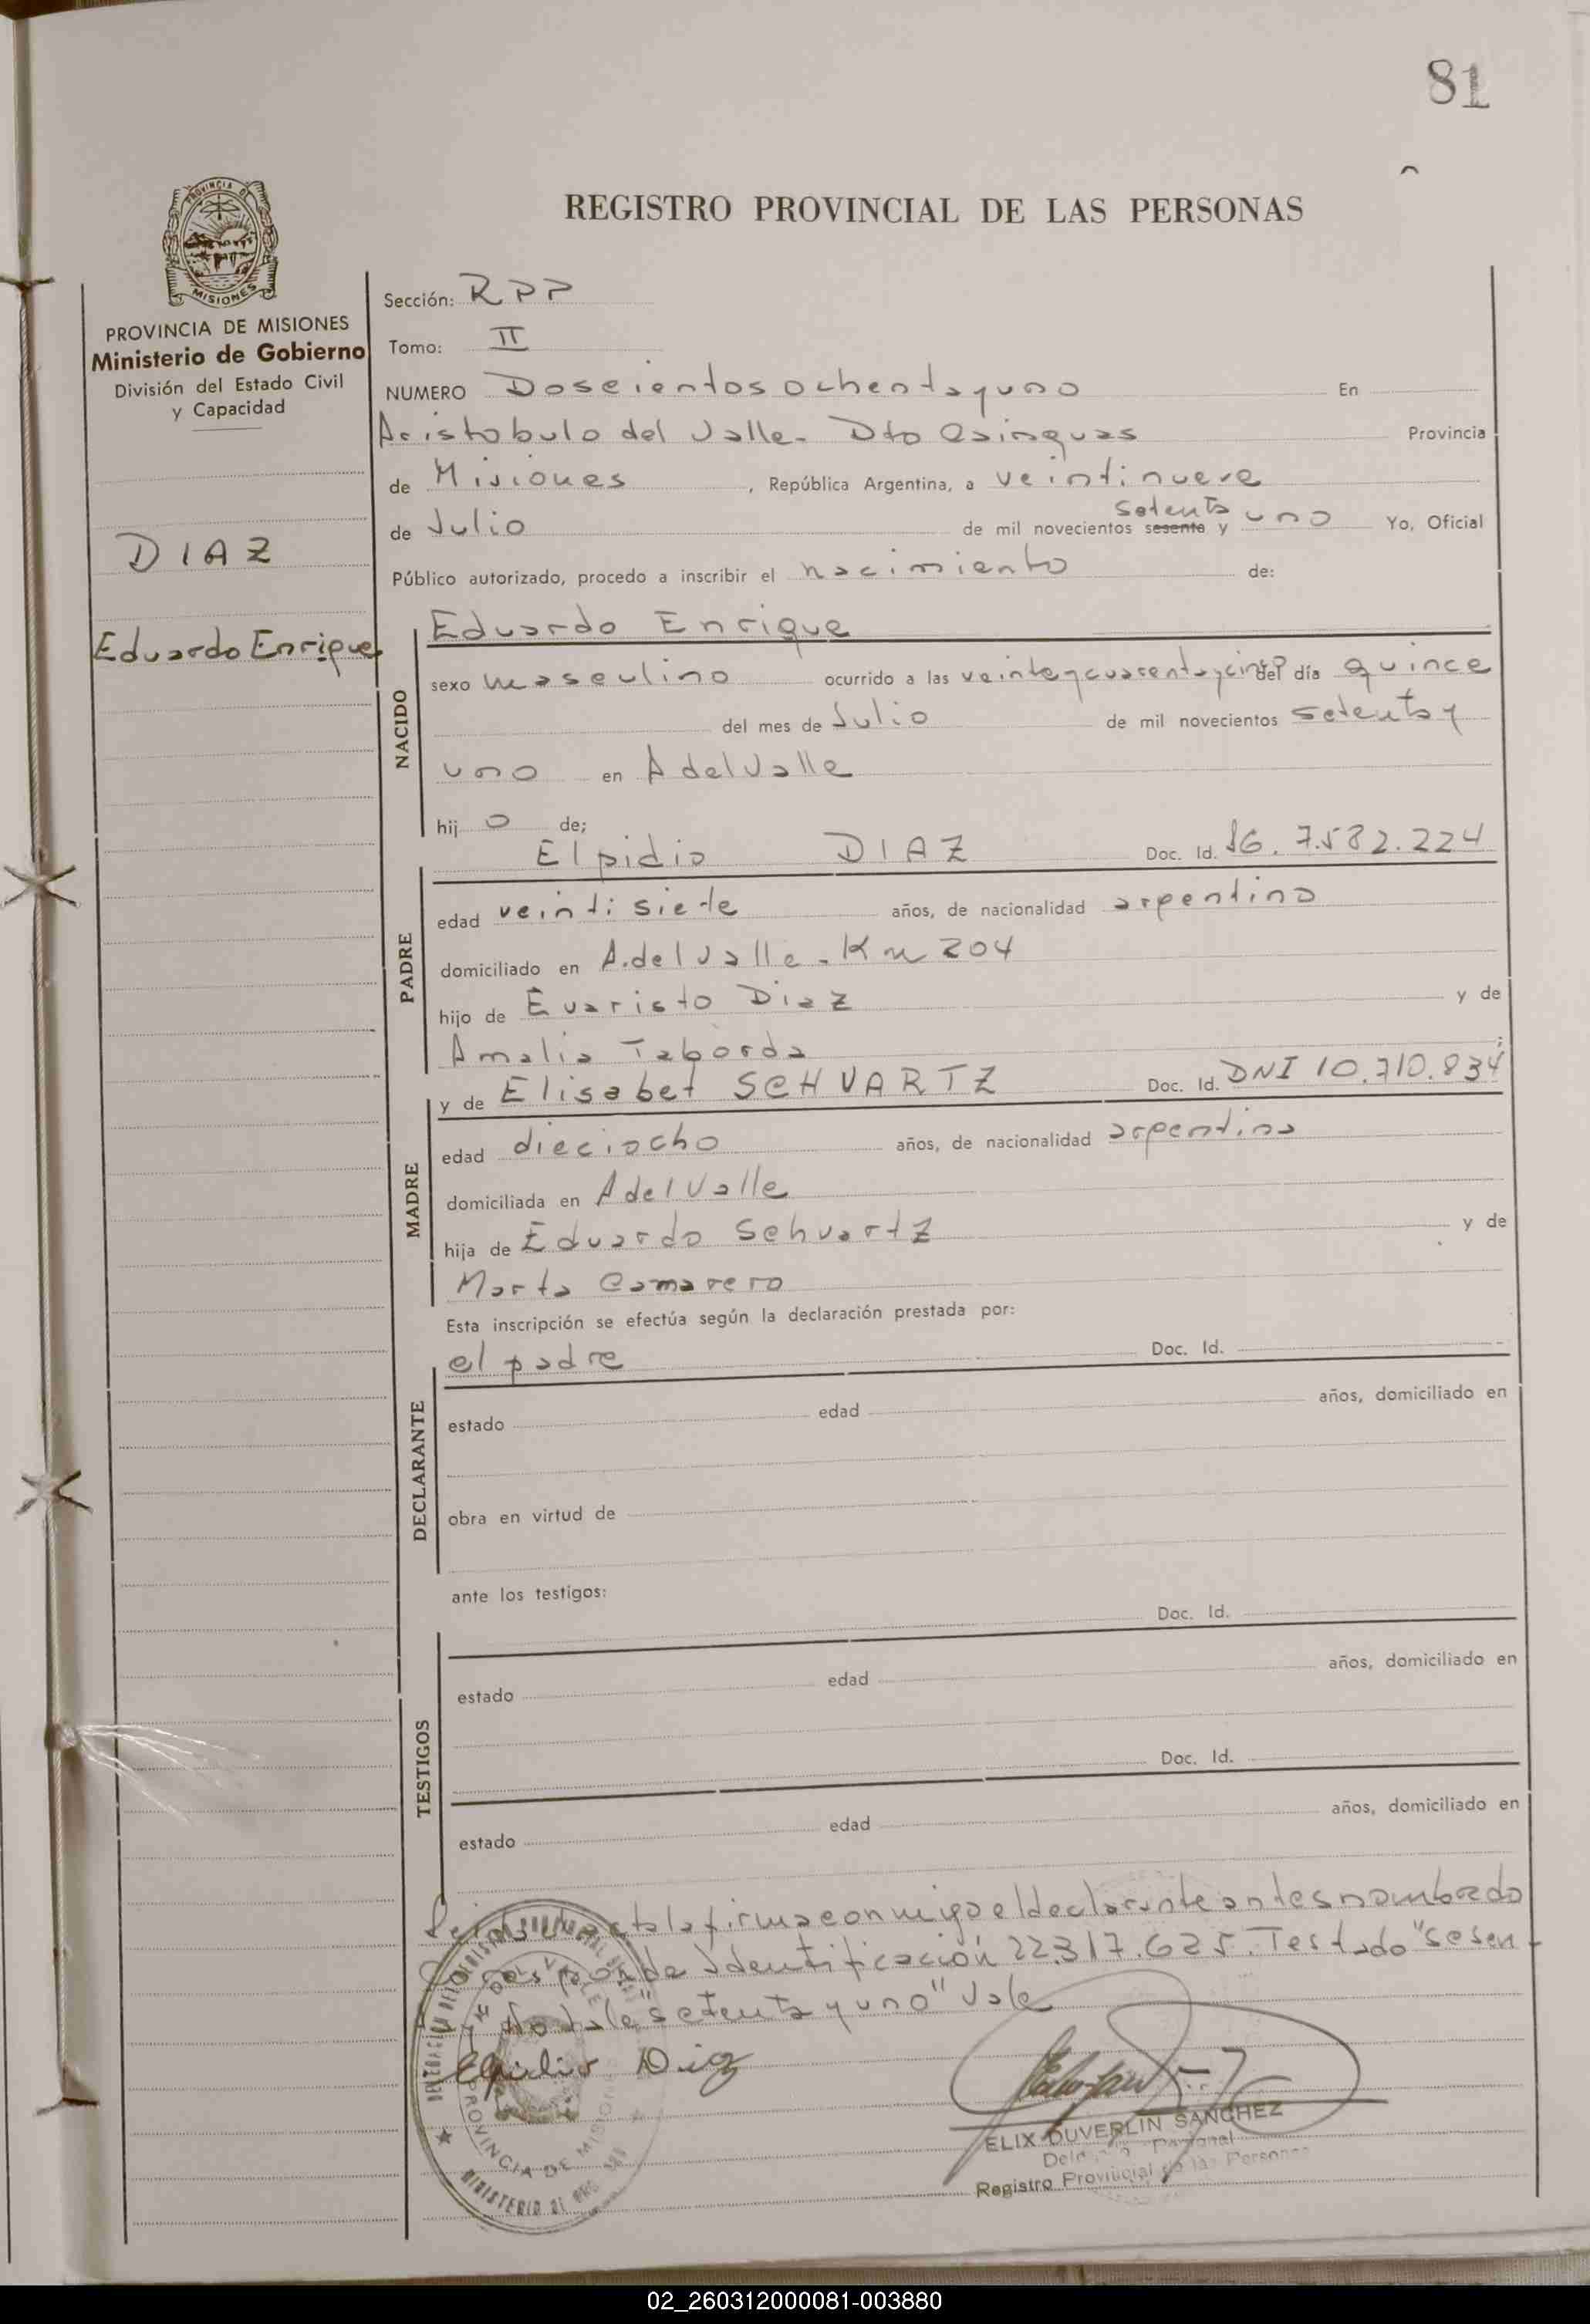 81
REGISTRO PROVINCIAL DE LAS PERSONAS
PROVINCIA DE MISIONES
Ministerio de Gobierno
División del Estado Civil
y Capacidad
DIAZ
Eduardo Enrique
Sección: RPP
Tomo: II
NUMERO Doscientos ochenta y uno En
Aristobulo del Valle - Dto Cainguas Provincia
de Misiones, República Argentina, a veintinueve
setenta
de Julio de mil novecientos sesenta y uno Yo, Oficial
Público autorizado, procedo a inscribir el nacimiento de:
NACIDO
Eduardo Enrique
sexo masculino ocurrido a las veinte y cuarenta y cinco del día quince
del mes de Julio de mil novecientos setenta y
uno en A del Valle
hijo de;
PADRE
Elpidio DIAZ Doc. Id. 7.582.224
edad veintisiete años, de nacionalidad argentino
domiciliado en A. del Valle - Km 204
hijo de Evaristo Diaz y de
Amalia Taborda
MADRE
y de Elisabet SCHVARTZ Doc. Id. DNI 10.710.834
edad dieciocho años, de nacionalidad argentina
domiciliada en A del Valle
hija de Eduardo Schvartz y de
Marta Camarero
Esta inscripción se efectúa según la declaración prestada por:
DECLARANTE
el padre Doc. Id.
estado edad años, domiciliado en
obra en virtud de
ante los testigos:
TESTIGOS
Doc. Id.
estado edad años, domiciliado en
Doc. Id.
estado edad años, domiciliado en
acta la firma conmigo el declarante antes nombrado
de identificación 22.317.625. Testado "sesen-
No vale "setenta y uno" Vale
Elpidio Diaz
ELIX DUVERLIN SANCHEZ
Registro Provincial de las Personas
PROVINCIA DE MISIONES
MINISTERIO DE
02_260312000081-003880